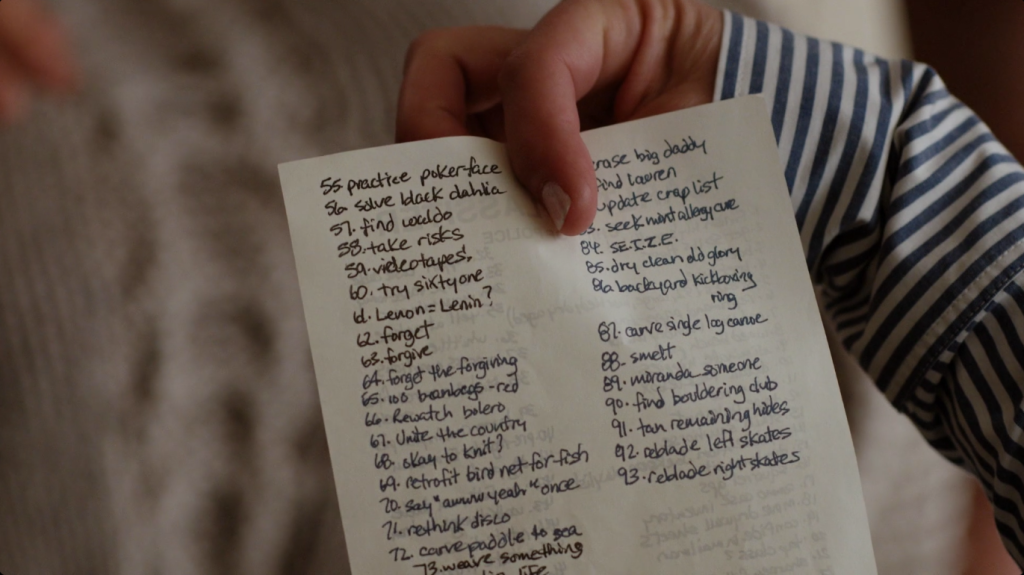 55. practice poker-face
56. solve black dahlia
57. find waldo
58. take risks
59. videotapes!
60. try sixtyone
61. Lenon = Lenin?
62. forget
63. forgive
64. forget the forgiving
65. 100 beanbags - red
66. Rewatch bolero
67. Unite the country
68. okay to knit?
69. retrofit bird net-for-fish
70. say "awww yeah" once
71. rethink disco
72. carve paddle to sea
73. weave something
life
erase big daddy
find lauren
update crap list
seek mint allergy cure
84. S.E.I.Z.E.
85. dry clean old glory
86 backyard kickboxing
ring
87. carve single log canoe
88. smelt
89. miranda someone
90. find bouldering club
91. tan remaining hides
92. reblade left skates
93. reblade right skates